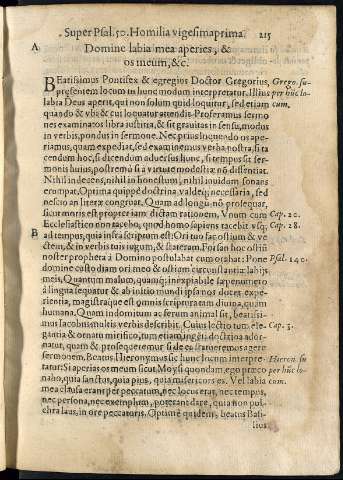 Super Psal. 50. Homilia vigesimaprima. 215
A Domine labia mea aperies, &
os meum, &c.
BEatissimus Pontifex & egregius Doctor Gregorius, Grego. su-
præsentem locum in hunc modum interpretatur. Illius per hūc lo-
labia Deus aperit, qui non solum quid loquitur, sed etiam cum.
quando & vbi & cui loquatur attendit. Proferamus sermo
nes examinatos libra iustitiæ, & sit grauitas in sensu, modus
in verbis, pondus in sermone. Nec prius loquendo os ape-
riamus, quam expediat, sed examinemus verba nostra, si ta
cendum hoc, si dicendum aduersus hunc, si tempus sit ser-
monis huius, postremò si à virtute modestiæ nō dissentiat.
Nihil indecens, nihil inhonestum, nihil inuidum sonans
erompat. Optima quippè doctrina, valdeq; necessaria, sed
nescio an literæ congruat. Quam ad longū nō prosequar,
sicut moris est propter iam dictam rationem. Vnum cum Cap. 20.
Ecclesiastico non tacebo, quod homo sapiens tacebit vsq; Cap. 28.
B ad tempus, quia ipsi scriptum est: Ori tuo fac ostium & ve
ctem, & in verbis tuis iugum, & stateram. Forsan hoc ostiū
noster propheta à Domino postulabat cum orabat: Pone Psal. 140.
domine custodiam ori meo & ostium circunstantiæ labijs
meis. Quantum malum, quamq; inexpiabile sæpenumero
à lingua sequatur & ab initio mundi ipsa nos docet expe-
rientia, magistraque est omnis scriptura tam diuina, quam
humana. Quam indomitum ac ferum animal sit, beatissi-
mus Iacobus multis verbis describit. Cuius lectio tum ele- Cap. 3.
gantia & ornatu mirifico, tum etiam ingēti doctrina ador-
natur, quam & prosequeremur si de ea statueremus agere
sermonem. Beatus Hieronymus sic hunc locum interpre- Hieron. su
tatur: Si aperias os meum sicut Moysi quondam, ego præco per hūc lo-
nabo, quia sanctus, quia pius, quia misericors es. Vel labia cum.
mea clausa erant per peccatum, nec locus erat, nec tempus,
nec persona, nec exemplum, poterant dare, quia non pul-
chra laus, in ore peccatoris. Optimè quidem, beatus Basi-
lius